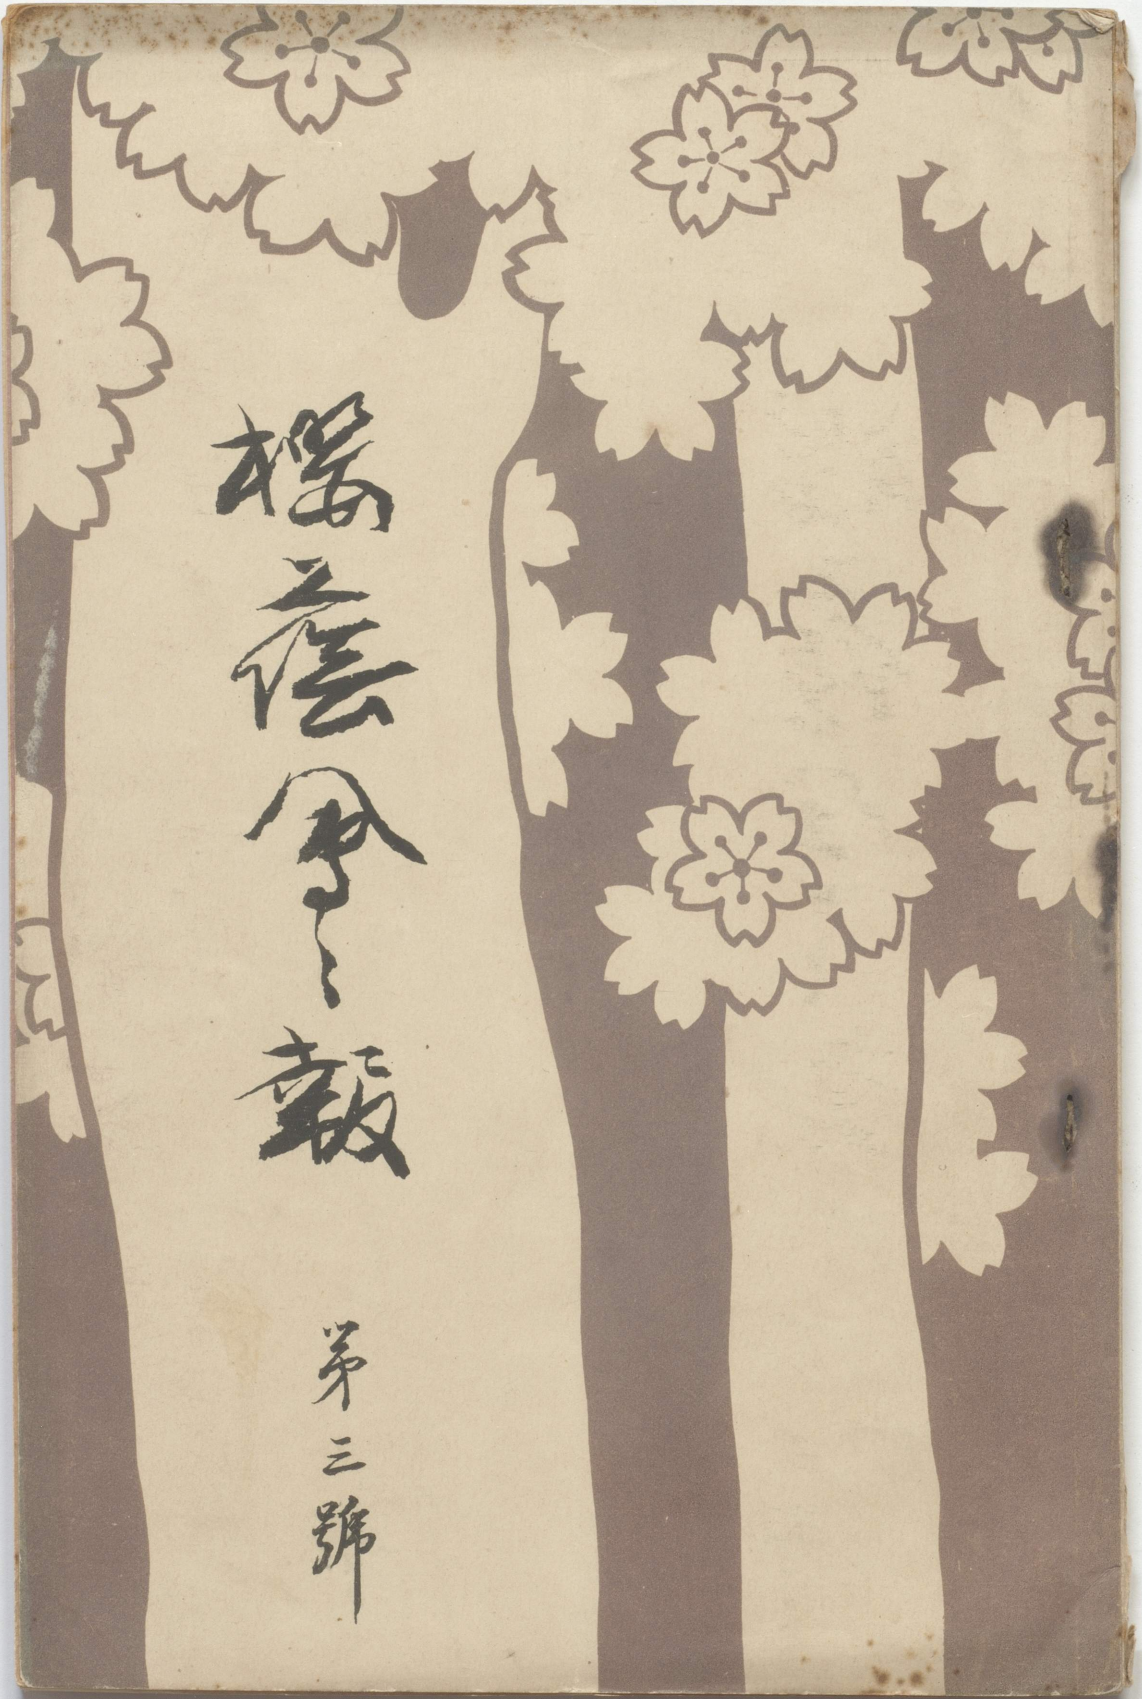 櫻蔭會々報
第三號